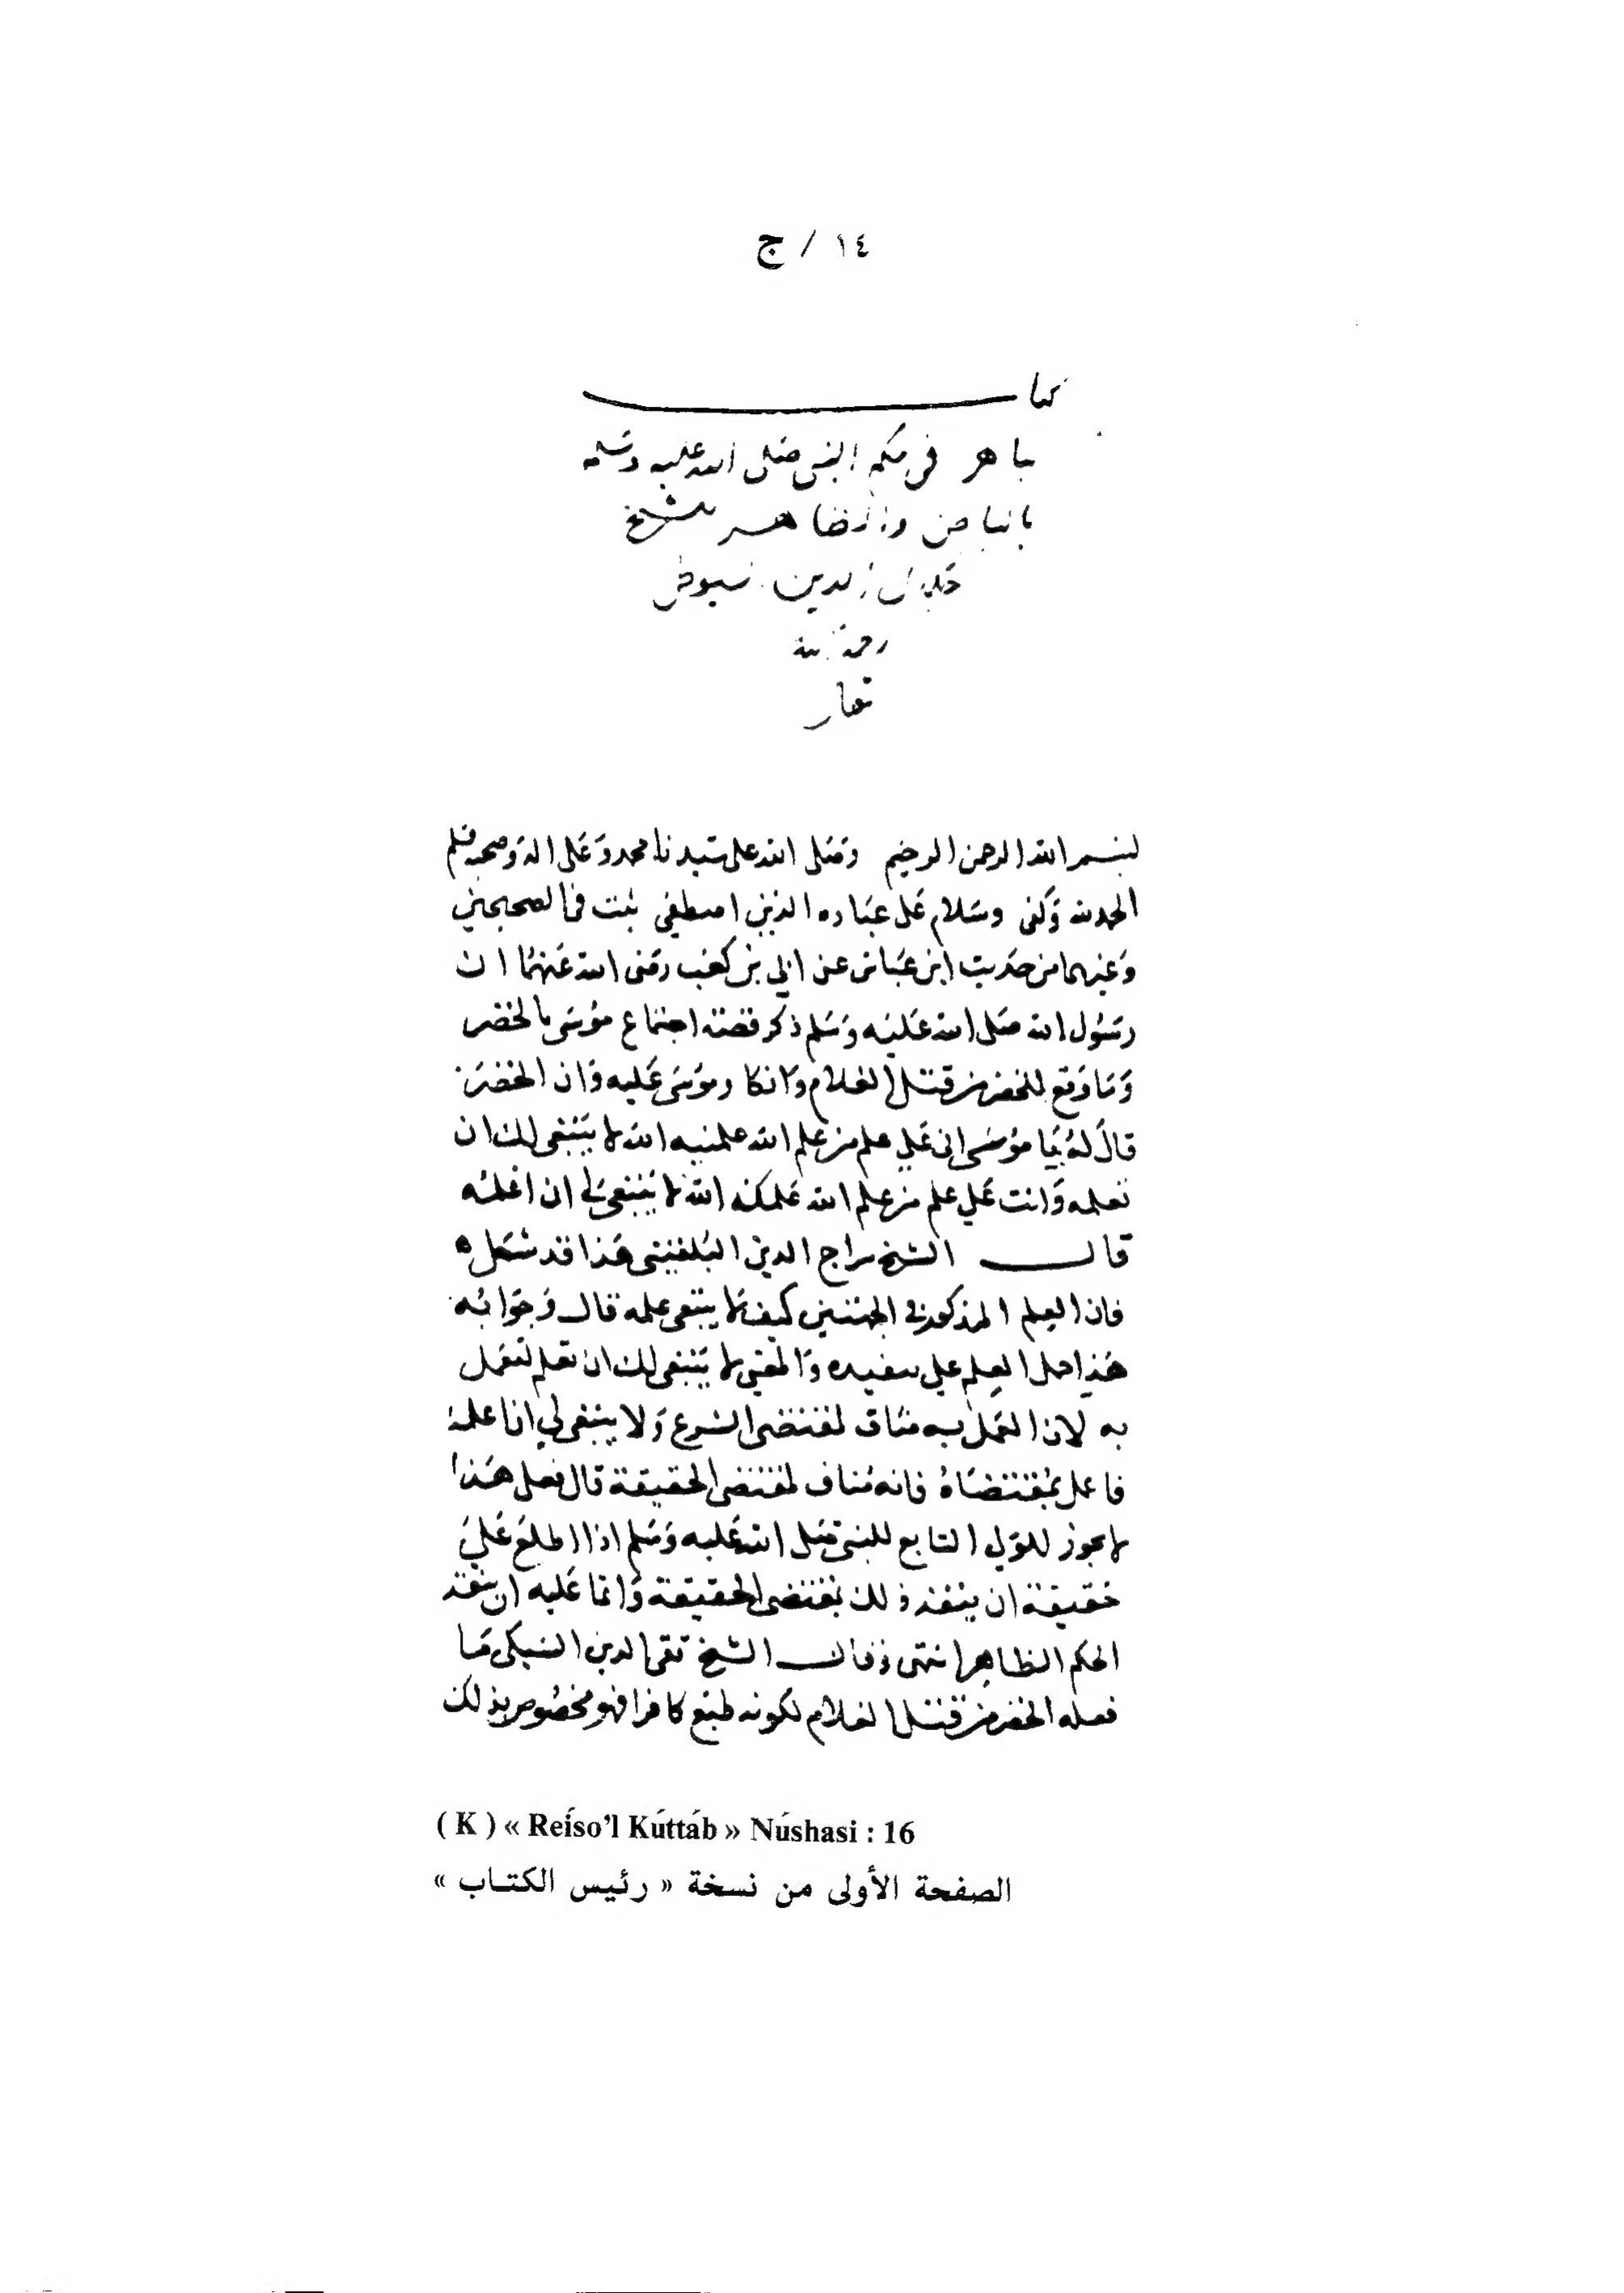 ١٤ / ج
كتاب
باهر في حكم النبي صلى الله عليه وسلم
بالباطن والظاهر للشيخ
جلال الدين السيوطي
رحمه الله
تعالى
بسم الله الرحمن الرحيم وصلى الله على سيدنا محمد وعلى اله وصحبه وسلم
الحمد لله وكفى وسلام على عباده الذين اصطفى ثبت في الصحيحين
وغيرهما من حديث ابن عباس عن ابي بن كعب رضى الله عنهما ان
رسول الله صلى الله عليه وسلم ذكر قصة اجتماع موسى بالخضر
وما وقع للخضر من قتل الغلام وانكار موسى عليه وان الخضر
قال له يا موسى اني على علم من علم الله علمنيه الله لا ينبغى لك ان
تعلمه وانت على علم من علم الله علمكه الله لا ينبغي لي ان اعلمه
قال الشيخ سراج الدين البلقيني هذا قد يشكل
فان العلم المذكور في الجهتين كيف لا ينبغى علمه قال وجوابه
هذا حمل العلم على تنفيذه والمعنى لا ينبغى لك ان تعلم لتعمل
به لان العمل به مناف لمقتضى الشرع ولا ينبغى لي ان اعلمه
فاعمل بمقتضاه فانه مناف لمقتضى الحقيقة قال فعلى هذا
لا يجوز للولي التابع للنبي صلى الله عليه وسلم اذا اطلع على
حقيقة ان ينفذ ذلك بمقتضى الحقيقة وانما عليه ان ينفذ
الحكم الظاهر انتهى وقال الشيخ تقى الدين السبكى ما
فعله الخضر من قتل الغلام لكونه طبع كافرا فهو مخصوص بذلك
( K ) « Reíso’l Kúttáb » Núshasi : 16
الصفحة الأولى من نسخة « رئيس الكتاب »